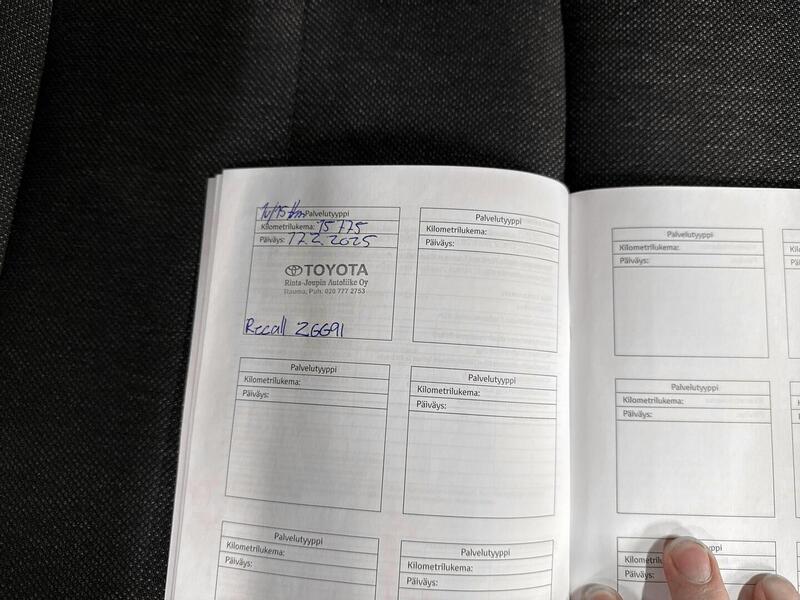 1v/15tkm Palvelutyyppi
Kilometrilukema: 15 775
Päiväys: 17.2.2025
TOYOTA
Rinta-Joupin Autoliike Oy
Rauma, Puh. 020 777 2753
Recall ZGG91
Palvelutyyppi
Kilometrilukema:
Päiväys:
Palvelutyyppi
Kilometrilukema:
Päiväys:
Palvelutyyppi
Kilometrilukema:
Päiväys:
Palvelutyyppi
Kilometrilukema:
Päiväys:
Palvelutyyppi
Kilometrilukema:
Päiväys:
Palvelutyyppi
Kilometrilukema:
Päiväys:
Palvelutyyppi
Kilometrilukema:
Päiväys: